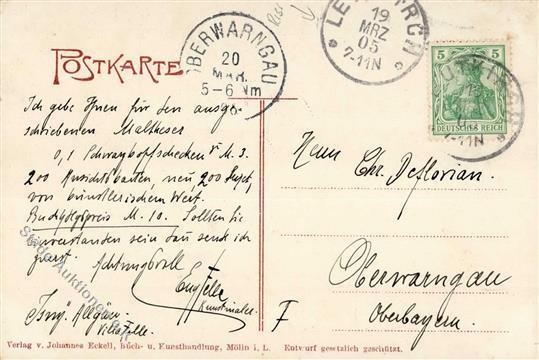 POSTKARTE
OBERWARNGAU
20
MAR.
5-6 Nm
19
MRZ
05
7-11N
5 5
DEUTSCHES REICH
7-11N
Ich gebe Ihnen für den ausge-
schriebenen Maltheser
0,1 M. 3.
200 Ansichtskarten, neu, 200
von künstlerischem Wert.
M. 10. Sollten Sie
einverstanden sein dan send ich
zuerst.
Achtungsvoll
Kunstmaler
Isny Allgäu
Herrn Chr. Deflorian.
Oberwarngau
Oberbayern.
F
Verlag v. Johannes Eckell, Buch- u. Kunsthandlung, Mölln i. L. Entwurf gesetzlich geschützt.